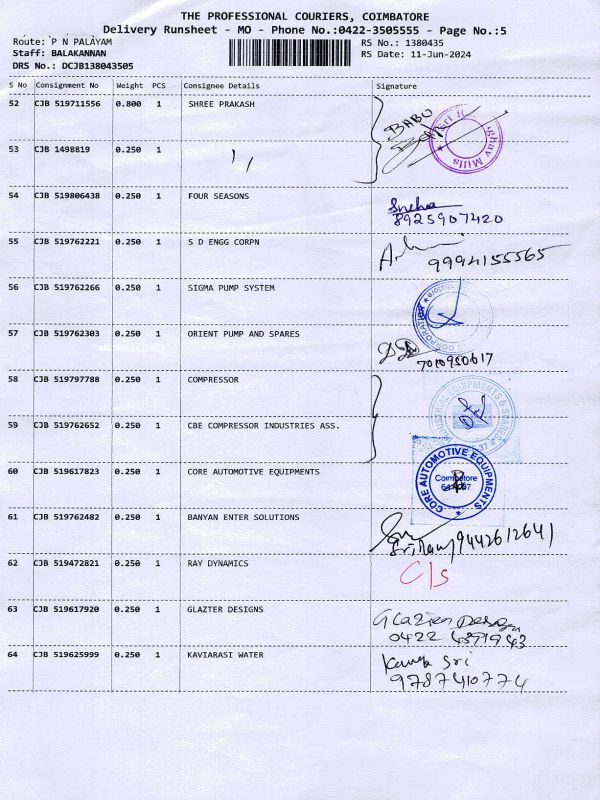 THE PROFESSIONAL COURIERS, COIMBATORE
Delivery Runsheet - MO - Phone No.:0422-3505555 - Page No.:5
Route: P N PALAYAM RS No.: 1380435
Staff: BALAKANNAN RS Date: 11-Jun-2024
DRS No.: DCJB138043505
S No Consignment No Weight PCS Consignee Details Signature
52 CJB 519711556 0.800 1 SHREE PRAKASH BABU
Mills
53 CJB 1498819 0.250 1 ,,
54 CJB 519806438 0.250 1 FOUR SEASONS Sneha
8925907420
55 CJB 519762221 0.250 1 S D ENGG CORPN 9994155565
56 CJB 519762266 0.250 1 SIGMA PUMP SYSTEM
CORPORATION
57 CJB 519762303 0.250 1 ORIENT PUMP AND SPARES
7010950617
58 CJB 519797788 0.250 1 COMPRESSOR
EQUIPMENTS &
59 CJB 519762652 0.250 1 CBE COMPRESSOR INDUSTRIES ASS.
60 CJB 519617823 0.250 1 CORE AUTOMOTIVE EQUIPMENTS CORE AUTOMOTIVE EQUIPMENTS
Coimbatore
61 CJB 519762482 0.250 1 BANYAN ENTER SOLUTIONS
Sriram 9442612641
62 CJB 519472821 0.250 1 RAY DYNAMICS C/s
63 CJB 519617920 0.250 1 GLAZTER DESIGNS
0422
64 CJB 519625999 0.250 1 KAVIARASI WATER Sri
9787410774